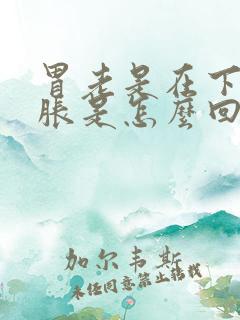 胃老是在下
胀是怎麽回
加尔韦斯
未经同意禁止转载